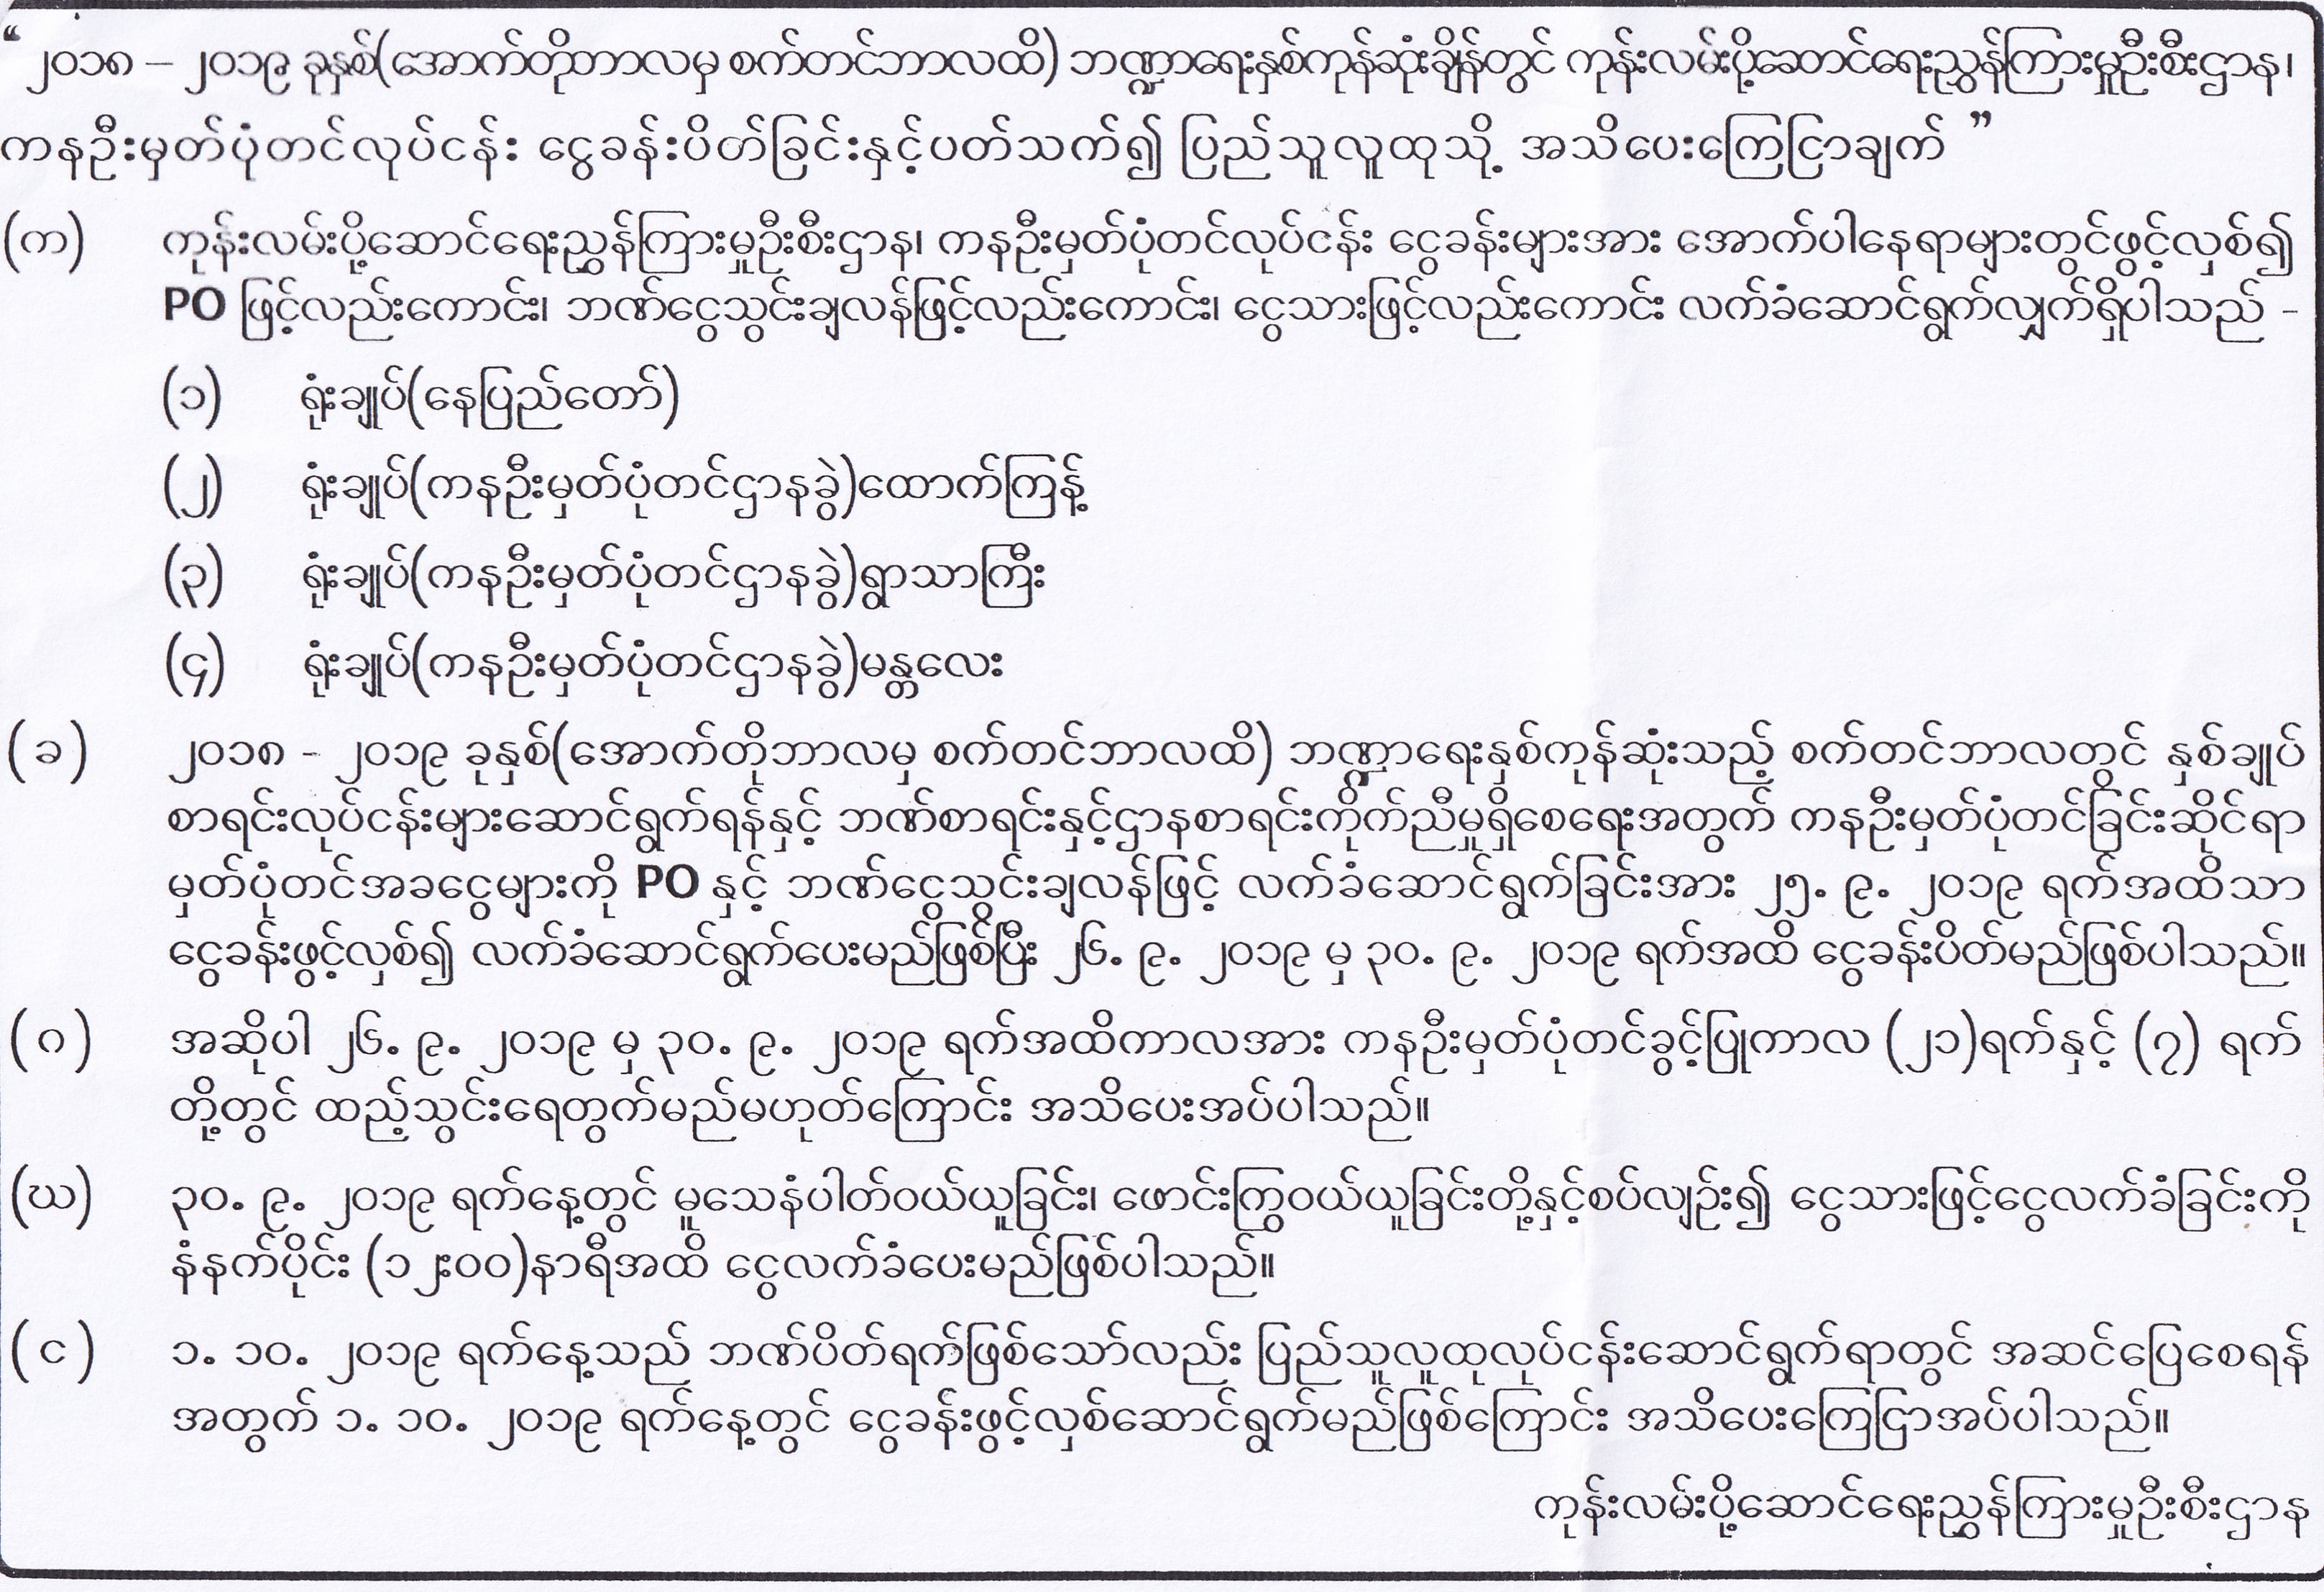 “ ၂၀၁၈ – ၂၀၁၉ ခုနှစ်(အောက်တိုဘာလမှ စက်တင်ဘာလထိ) ဘဏ္ဍာရေးနှစ်ကုန်ဆုံးချိန်တွင် ကုန်းလမ်းပို့ဆောင်ရေးညွှန်ကြားမှုဦးစီးဌာန၊
ကနဦးမှတ်ပုံတင်လုပ်ငန်း ငွေခန်းပိတ်ခြင်းနှင့်ပတ်သက်၍ ပြည်သူလူထုသို့ အသိပေးကြေငြာချက် ”
(က) ကုန်းလမ်းပို့ဆောင်ရေးညွှန်ကြားမှုဦးစီးဌာန၊ ကနဦးမှတ်ပုံတင်လုပ်ငန်း ငွေခန်းများအား အောက်ပါနေရာများတွင်ဖွင့်လှစ်၍
PO ဖြင့်လည်းကောင်း၊ ဘဏ်ငွေသွင်းချလန်ဖြင့်လည်းကောင်း၊ ငွေသားဖြင့်လည်းကောင်း လက်ခံဆောင်ရွက်လျှက်ရှိပါသည် -
(၁) ရုံးချုပ်(နေပြည်တော်)
(၂) ရုံးချုပ်(ကနဦးမှတ်ပုံတင်ဌာနခွဲ)ထောက်ကြန့်
(၃) ရုံးချုပ်(ကနဦးမှတ်ပုံတင်ဌာနခွဲ)ရွာသာကြီး
(၄) ရုံးချုပ်(ကနဦးမှတ်ပုံတင်ဌာနခွဲ)မန္တလေး
(ခ) ၂၀၁၈ - ၂၀၁၉ ခုနှစ်(အောက်တိုဘာလမှ စက်တင်ဘာလထိ) ဘဏ္ဍာရေးနှစ်ကုန်ဆုံးသည့် စက်တင်ဘာလတွင် နှစ်ချုပ်
စာရင်းလုပ်ငန်းများဆောင်ရွက်ရန်နှင့် ဘဏ်စာရင်းနှင့်ဌာနစာရင်းကိုက်ညီမှုရှိစေရေးအတွက် ကနဦးမှတ်ပုံတင်ခြင်းဆိုင်ရာ
မှတ်ပုံတင်အခငွေများကို PO နှင့် ဘဏ်ငွေသွင်းချလန်ဖြင့် လက်ခံဆောင်ရွက်ခြင်းအား ၂၅. ၉. ၂၀၁၉ ရက်အထိသာ
ငွေခန်းဖွင့်လှစ်၍ လက်ခံဆောင်ရွက်ပေးမည်ဖြစ်ပြီး ၂၆. ၉. ၂၀၁၉ မှ ၃၀. ၉. ၂၀၁၉ ရက်အထိ ငွေခန်းပိတ်မည်ဖြစ်ပါသည်။
(ဂ) အဆိုပါ ၂၆. ၉. ၂၀၁၉ မှ ၃၀. ၉. ၂၀၁၉ ရက်အထိကာလအား ကနဦးမှတ်ပုံတင်ခွင့်ပြုကာလ (၂၁)ရက်နှင့် (၇) ရက်
တို့တွင် ထည့်သွင်းရေတွက်မည်မဟုတ်ကြောင်း အသိပေးအပ်ပါသည်။
(ဃ) ၃၀. ၉. ၂၀၁၉ ရက်နေ့တွင် မူသေနံပါတ်ဝယ်ယူခြင်း၊ ဖောင်းကြွဝယ်ယူခြင်းတို့နှင့်စပ်လျဉ်း၍ ငွေသားဖြင့်ငွေလက်ခံခြင်းကို
နံနက်ပိုင်း (၁၂း၀၀)နာရီအထိ ငွေလက်ခံပေးမည်ဖြစ်ပါသည်။
(င) ၁. ၁၀. ၂၀၁၉ ရက်နေ့သည် ဘဏ်ပိတ်ရက်ဖြစ်သော်လည်း ပြည်သူလူထုလုပ်ငန်းဆောင်ရွက်ရာတွင် အဆင်ပြေစေရန်
အတွက် ၁. ၁၀. ၂၀၁၉ ရက်နေ့တွင် ငွေခန်းဖွင့်လှစ်ဆောင်ရွက်မည်ဖြစ်ကြောင်း အသိပေးကြေငြာအပ်ပါသည်။
ကုန်းလမ်းပို့ဆောင်ရေးညွှန်ကြားမှုဦးစီးဌာန